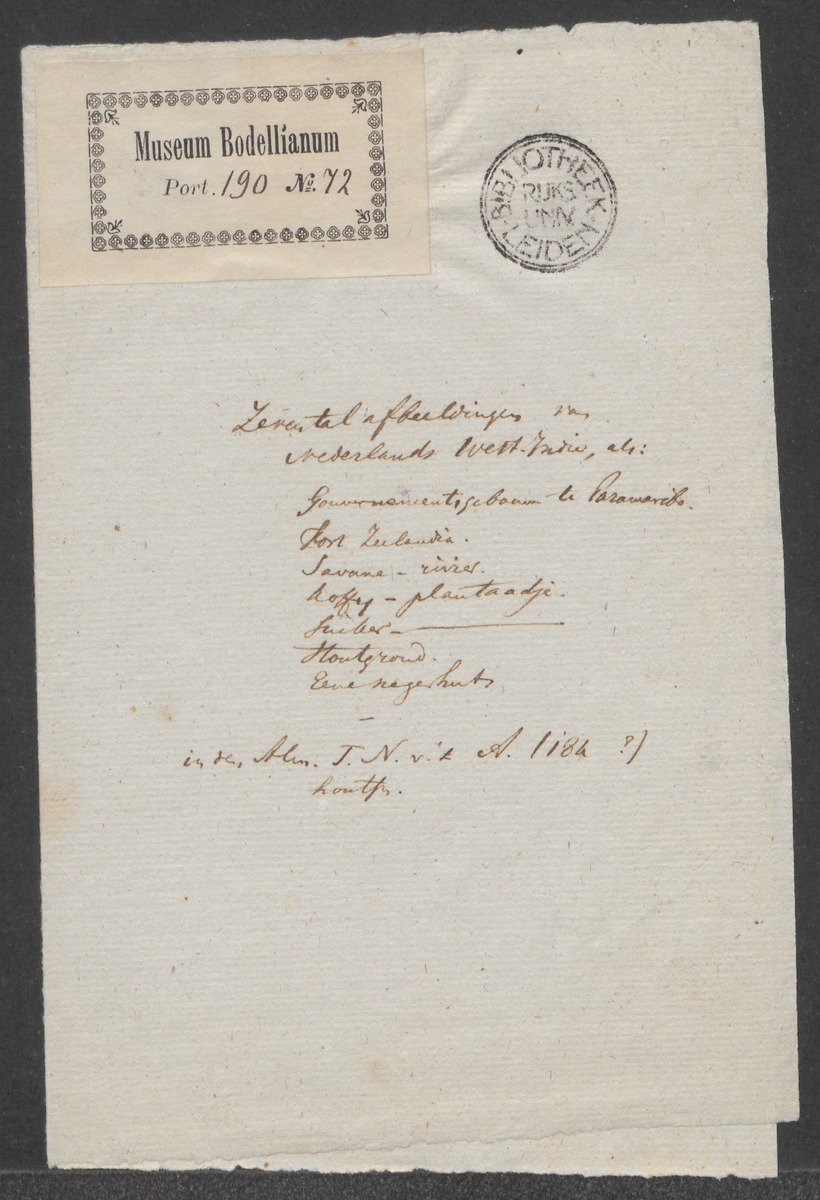 Museum Bodellianum
Port. 190 No. 72
BIBLIOTHEEK
RIJKS
UNIV.
LEIDEN
Zevental afbeeldingen van
Nederlands West-Indie, als:
Gouvernementsgebouw te Paramaribo.
Fort Zeelandia.
Savane - rivier.
Koffy - plantaadje.
Suiker -
Houtgrond.
Eene negerhut
in den Alm. T. N. v. 't A. (184 ?)
houts.